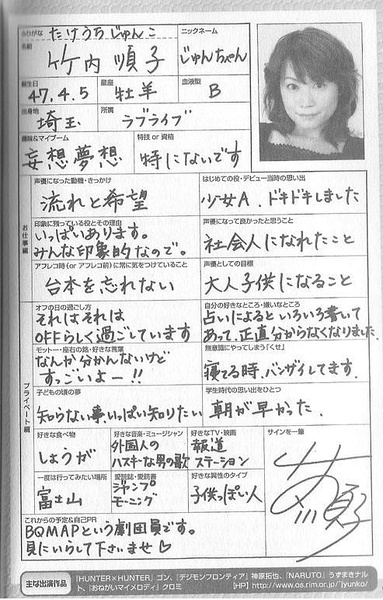 ふりがな たけうちじゅんこ ニックネーム
名前 竹内順子 じゅんちゃん
誕生日 星座 血液型
47.4.5 牡羊 B
出身地 所属
埼玉 ラブライブ
趣味&マイブーム 特技 or 資格
妄想夢想 特にないです
お仕事編
声優になった動機・きっかけ はじめての役・デビュー当時の思い出
流れと希望 少女A. ドキドキしました
印象に残っている役とその理由 声優になって良かったと思うこと
いっぱいあります。 社会人になれたこと
みんな印象的なので。
アフレコ時(or アフレコ前)に常に気をつけていること 声優としての目標
台本を忘れない 大人子供になること
プライベート編
オフの日の過ごし方 自分の好きなところ・嫌いなところ
それはそれは 占いによるといろいろ書いて
OFFらしく過ごしています あって、正直分からなくなりました。
モットー・座右の銘・好きな言葉 無意識にやってしまう「くせ」
なんか分かんないけど 寝てる時、バンザイしてます。
すっごいよー!!
子どもの頃の夢 学生時代の思い出をひとつ
知らない事、いっぱい知りたい 朝が早かった.
好きな食べ物 好きな音楽・ミュージシャン 好きなTV・映画 サインを一筆
しょうが 外国人の 報道
ハスキーな男の歌 ステーション
一度は行ってみたい場所 愛読誌・愛読書 好きな異性のタイプ
富士山 ジャンプ 子供っぽい人
モーニング
これからの予定&自己PR
BQMAPという劇団員です。
見にいらして下さいませ♡
主な出演作品 『HUNTER×HUNTER』ゴン、『デジモンフロンティア』神原拓也、『NARUTO』うずまきナルト、『おねがいマイメロディ』クロミ
【HP】http://www.os.rim.or.jp/~jyunko/